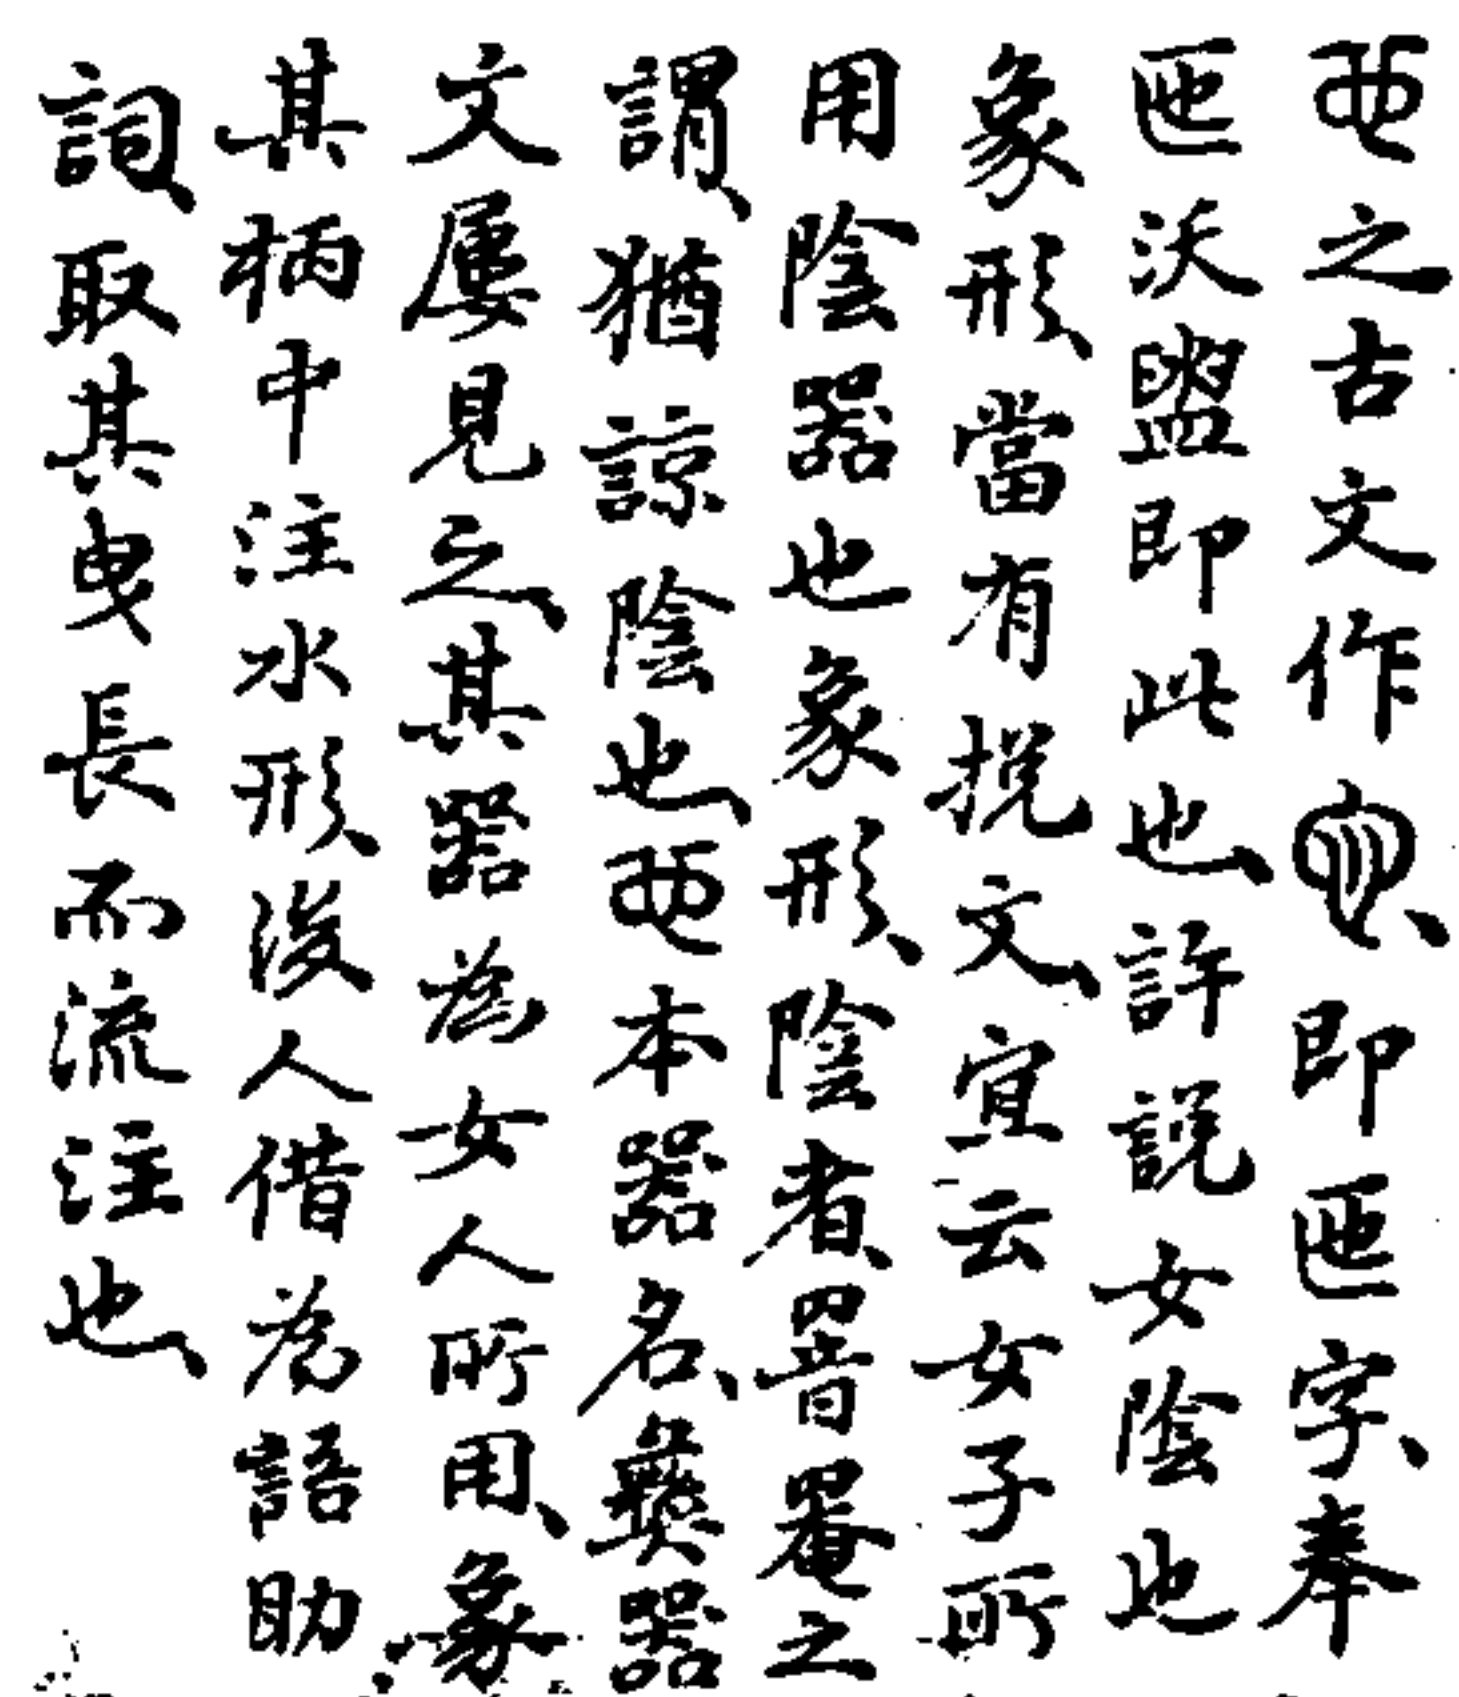 之古文作即匜字、奉
匜沃盥即此也、許說女陰也
象形、當有挩文、宜云女子所
用陰器也象形、陰者、罯罨之
謂、猶諒陰也、本器名、彝器
文屢見之、其器為女人所用、象
其柄中注水形、後人借為語助
詞、取其曳長而流注也、